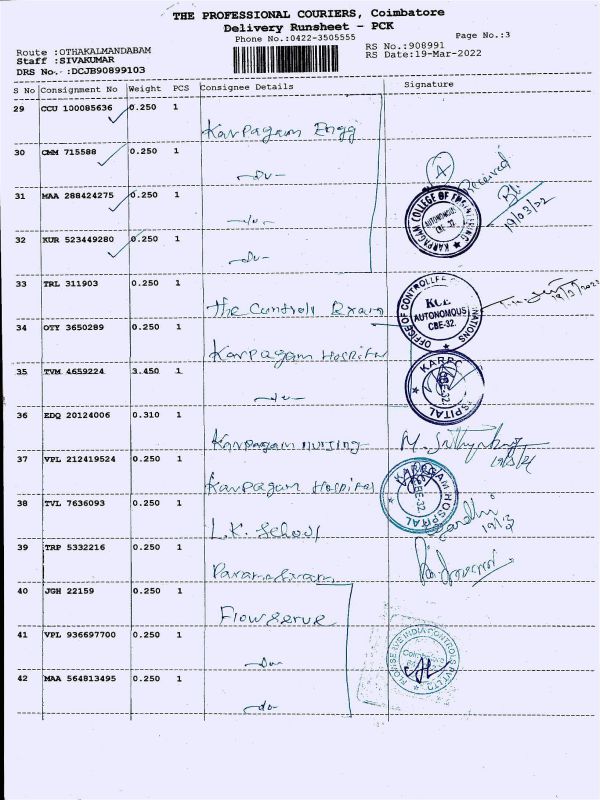 THE PROFESSIONAL COURIERS, Coimbatore
Delivery Runsheet - PCK
Phone No.:0422-3505555
Page No.:3
Route :OTHAKALMANDABAM
Staff :SIVAKUMAR
DRS No. :DCJB90899103
RS No.:908991
RS Date:19-Mar-2022
S No Consignment No Weight PCS Consignee Details Signature
29 CCU 100085636 0.250 1 Karpagam Engg
30 CMM 715588 0.250 1 -do-
A Received
31 MAA 288424275 0.250 1 -do-
KARPAGAM COLLEGE OF ENGINEERING AUTONOMOUS CBE-32.
19/03/22
32 KUR 523449280 0.250 1 -do-
33 TRL 311903 0.250 1 The Controll Exam
OFFICE OF CONTROLLER NATIONS KCE AUTONOMOUS CBE-32.
34 OTY 3650289 0.250 1 Karpagam Hospital
35 TVM 4659224 3.450 1 -do-
KARPG SPITAL CBE-32
36 EDQ 20124006 0.310 1 Karpagam nursing
37 VPL 212419524 0.250 1 Karpagam Hospital
KARPAGAM HOSPITAL CBE-32
38 TVL 7636093 0.250 1 L.K. School
39 TRP 5332216 0.250 1
40 JGH 22159 0.250 1 Flowserve
41 VPL 936697700 0.250 1 -do-
FLOWSERVE INDIA CONTROLS PVT LTD
42 MAA 564813495 0.250 1 -do-